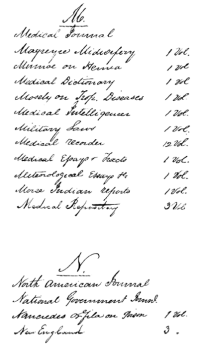 M.
Medical Journal
Magregre Midwifery 1 Vol.
Monroe on Hernia 1 vol
Medical Dictionary 1 vol
Mosely on Trop. Diseases 1 Vol
Medical Intelligencer 1 Vol
Military Laws 1 Vol.
Medical recorder 12 Vol.
Medical Essays & Tracts 1 Vol.
Meteorological Essays &c 1 Vol.
Morse Indian reports 1 Vol.
Medical Repository 3 Vol
N.
North American Journal
National Government Journal
on 1 Vol
New England 3.